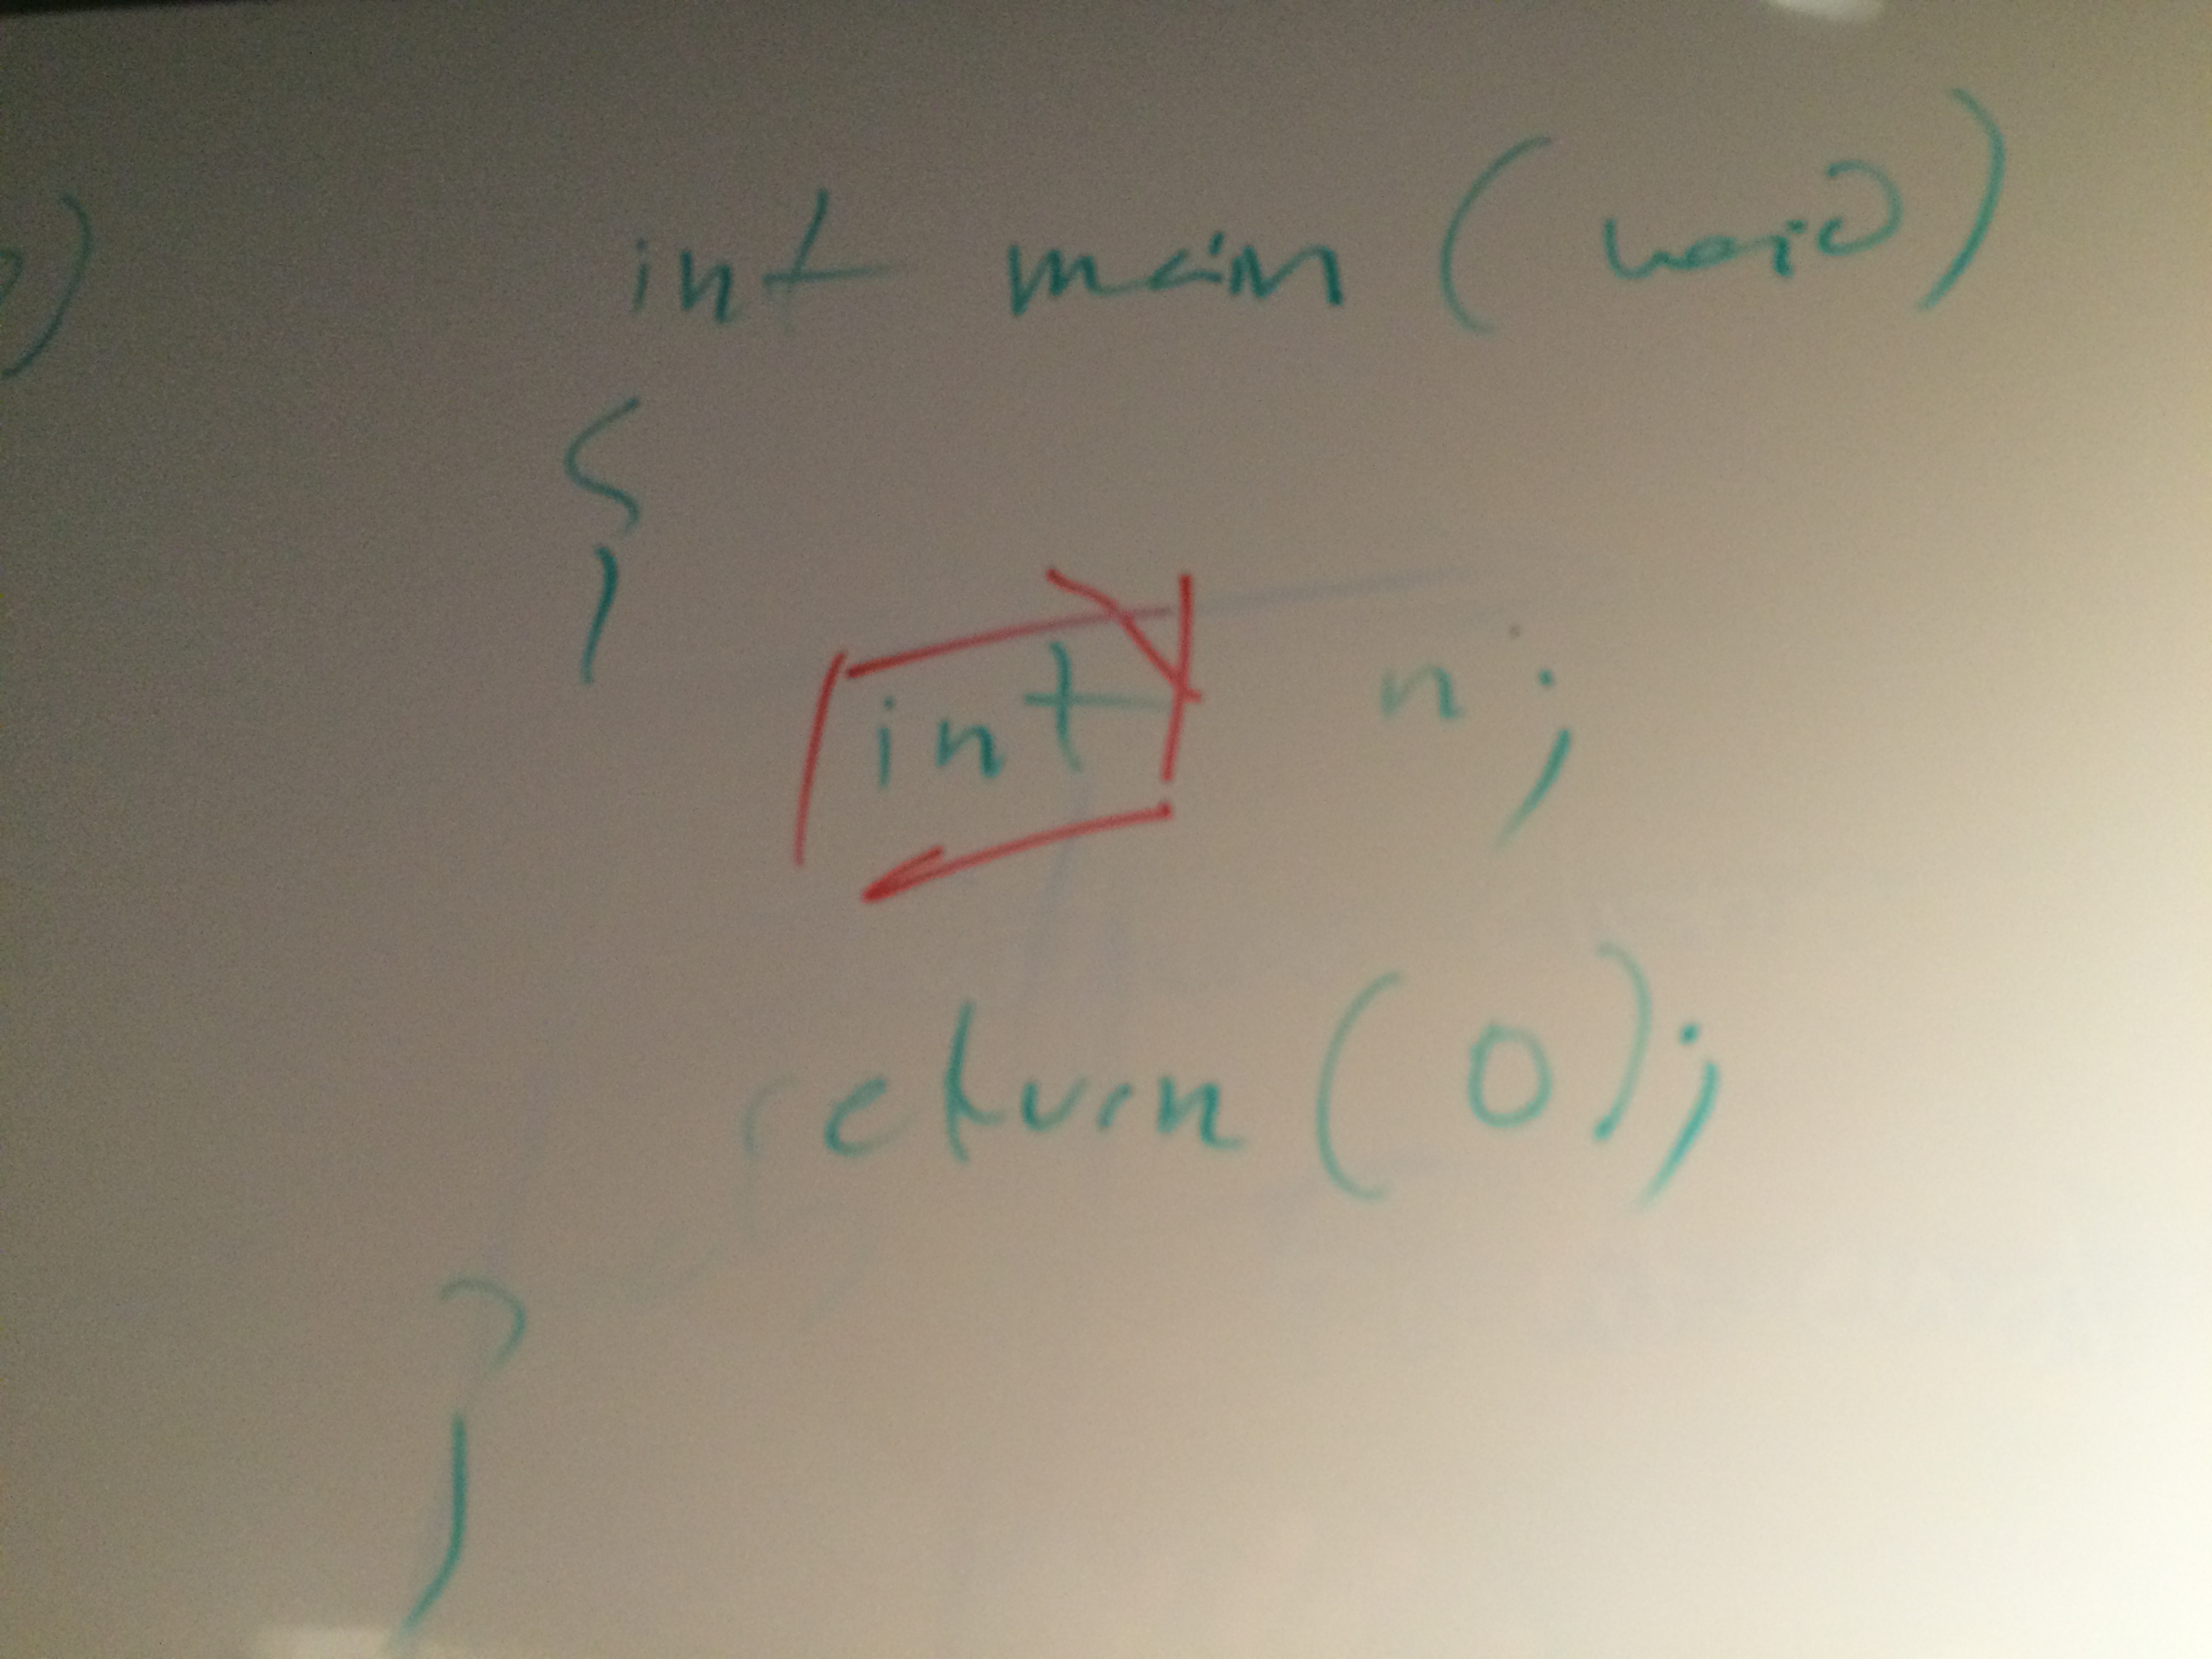 )
int main (void)
{
int n;
return (0);
}